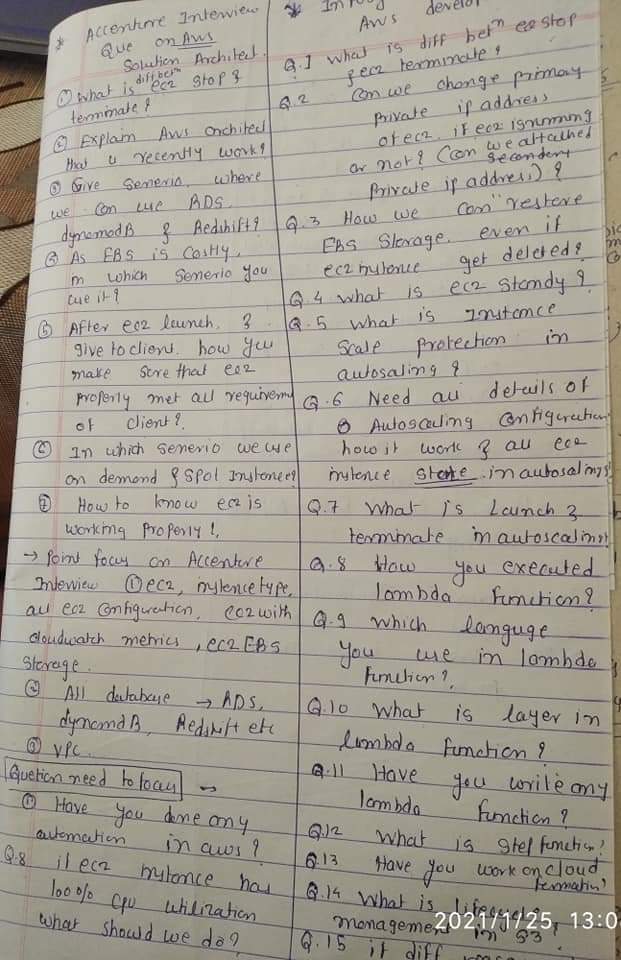 * Accenture Interview
Que on AWS
Solution Architect.
① What is diff betn ec2 stop &
terminate?
② Explain Aws architect
that u recently work?
③ Give Senerio, where
we can use RDS,
dynamodB & Redshift?
④ As EBS is Costly,
in which Senerio you
use it?
⑤ After ec2 launch, &
give to client. how you
make sure that ec2
properly met all requirem
of client?
⑥ In which senerio we use
on demand & spot Instance?
⑦ How to know ec2 is
working Properly?
→ Point focus on Accenture
Interview ① ec2, instence type,
all ec2 configuration, ec2 with
cloudwatch metrics, ec2 EBS
Storage.
② All database → RDS,
dynamodB, Redshift etc
③ VPC.
Quetion need to focus →
① Have you done any
automation in aws?
Q.8 if ec2 instence has
100% cpu utilization
what should we do?
* In
Aws develo
Q.1 What is diff betn ec2 stop
& ec2 terminate?
Q.2 Can we change primary
private ip address
of ec2, if ec2 is running
or not? (can we attached
secondery
private ip address)?
Q.3 How we can restore
EBS Storage, even if
ec2 instence get deleted?
Q.4 What is ec2 standy?
Q.5 What is Instance
Scale protection in
autosaling?
Q.6 Need all details of
Autoscaling Configuration
how it work & all ec2
instence state in autosaling?
Q.7 What is Launch &
terminate in autoscaling?
Q.8 How you executed
lambda function?
Q.9 Which languge
you use in lambda
function?
Q.10 What is layer in
lambda function?
Q.11 Have you write any
lambda function?
Q.12 What is step function?
Q.13 Have you work on cloud
formation?
Q.14 What is lifecycle
management in S3?
Q.15 if diff
2021/1/25, 13:0